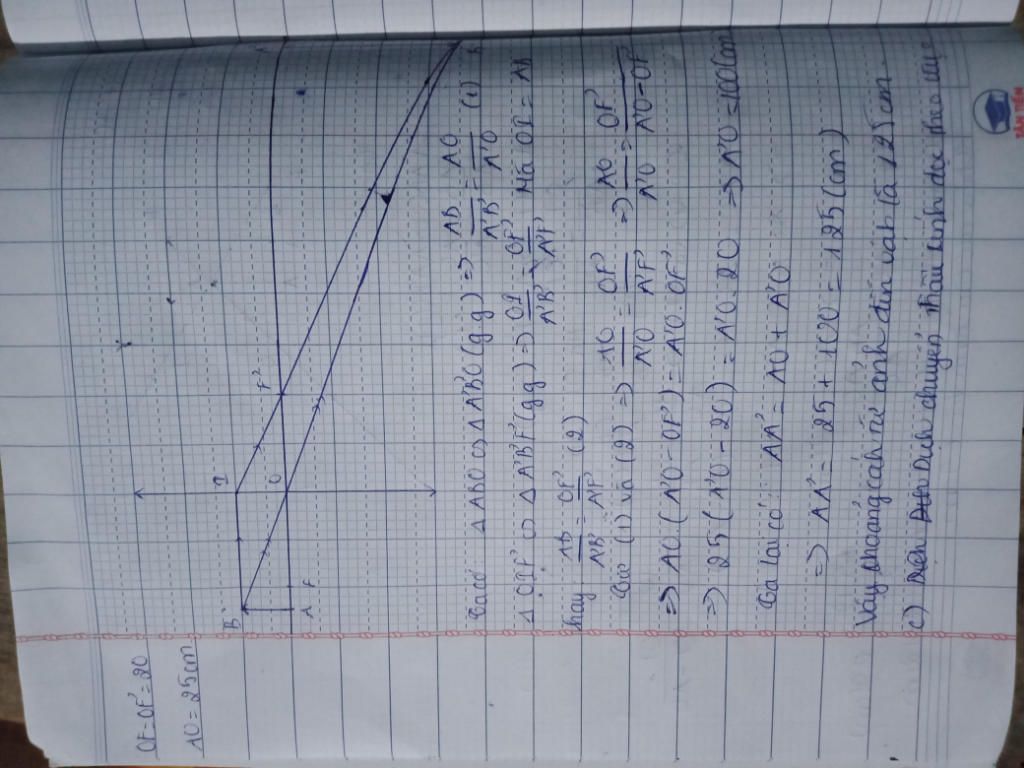 OF = OF' = 20
AO = 25cm
B
I
A
F
O
F'
A'
B'
Ta có ΔABO ∽ ΔA'B'O (gg) => AB/A'B' = AO/A'O (1)
Δ OIF' ∽ Δ A'B'F' (gg) => OI/A'B' = OF'/A'F' Mà OI = AB
hay AB/A'B' = OF'/A'F' (2)
Từ (1) và (2) => AO/A'O = OF'/A'F' => AO/A'O = OF'/A'O-OF'
=> AO (A'O - OF') = A'O. OF'
=> 25 (A'O - 20) = A'O. 20 => A'O = 100(cm
Ta lại có: AA' = AO + A'O
=> AA' = 25 + 100 = 125 (cm)
Vậy khoảng cách từ ảnh đến vật là 125cm.
c) Dịch chuyển thấu kính dọc theo
TÂN TIẾN